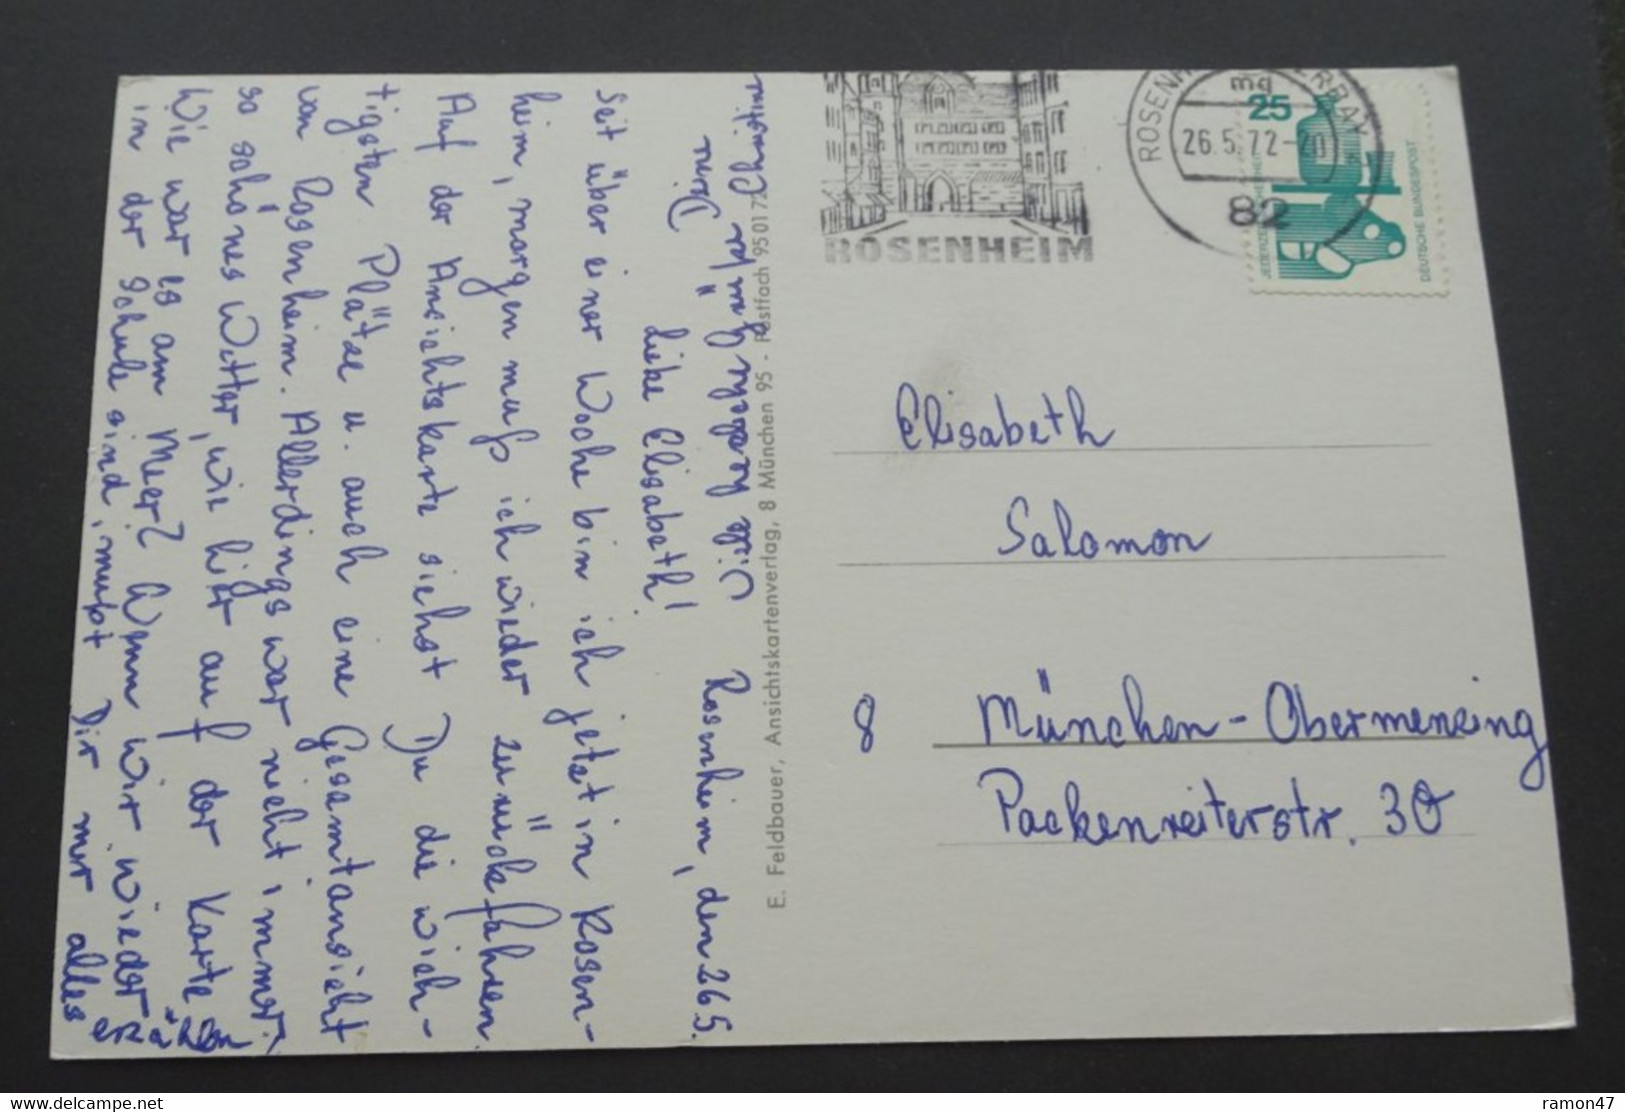 Rosenheim, den 26.5.
Liebe Elisabeth!
Seit über einer Woche bin ich jetzt in Rosen-
heim, morgen muß ich wieder zurückfahren.
Auf der Ansichtskarte siehst Du die wich-
tigsten Plätze u. auch eine Gesamtansicht
von Rosenheim. Allerdings war nicht immer
so schönes Wetter, wie hier auf der Karte.
Wie war es am Meer? Wenn wir wieder
in der Schule sind, mußt Dir mir alles
erzählen
Viele herzliche Grüße
Christine
E. Feldbauer, Ansichtskartenverlag, 8 München 95 - Postfach 95 01 72
ROSENHEIM
26.5.72-20
mq
82
25
JEDERZEIT SICHERHEIT
DEUTSCHE BUNDESPOST
Elisabeth
Salomon
8 München-Obermenzing
Packenreiterstr. 30
delcampe.net
ramon47